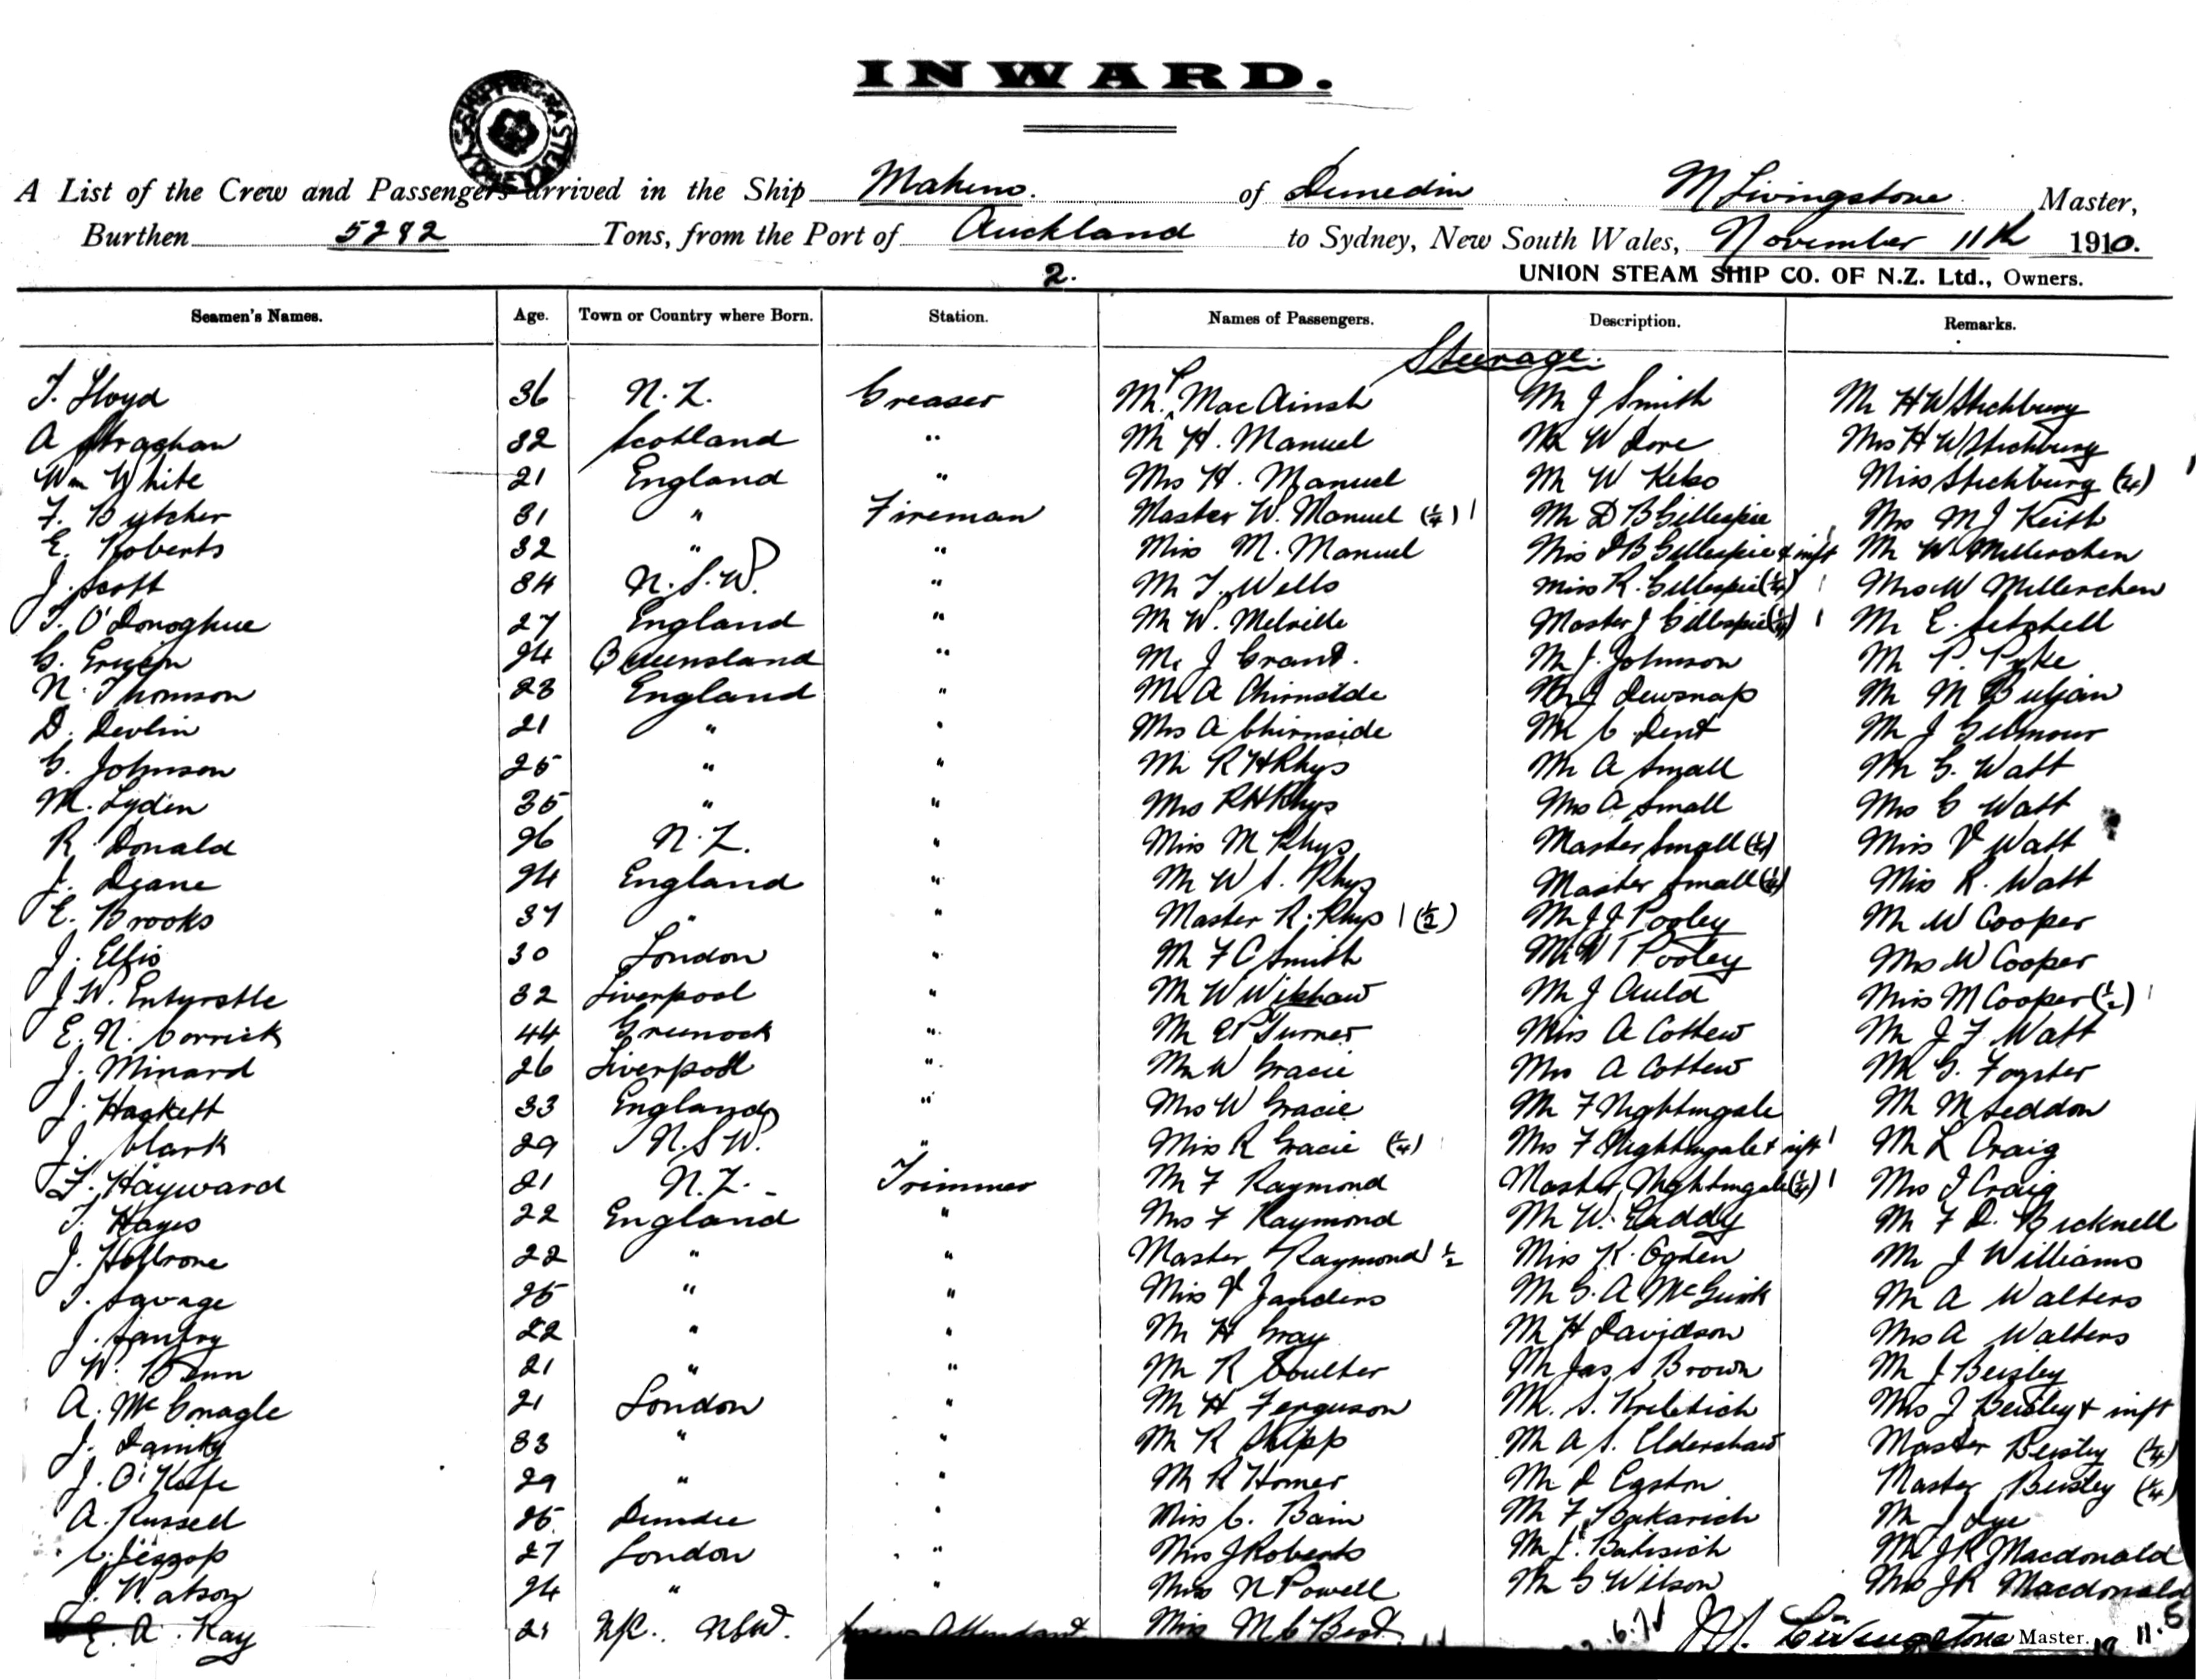 INWARD.
SHIPPING MASTER SYDNEY
A List of the Crew and Passengers arrived in the Ship Maheno. of Dunedin M Livingstone Master,
Burthen 5282 Tons, from the Port of Auckland to Sydney, New South Wales, November 11th 1910.
2. UNION STEAM SHIP CO. OF N.Z. Ltd., Owners.
Seamen's Names. Age. Town or Country where Born. Station. Names of Passengers. Description. Remarks.
Steerage.
T. Lloyd 36 N.Z. Greaser Mr MacAinsh Mr J Smith Mr H W Stichbury
A Straghan 32 Scotland " Mr H. Manuel Mr W Dore Mrs H W Stichbury
Wm White 21 England " Mrs H. Manuel Mr W Kelso Miss Stichbury (1/4)
F. Butcher 31 " Fireman Master W. Manuel (1/4) 1 Mr D B Gillespie Mrs M J Keith
E. Roberts 32 " " Miss M. Manuel Mrs D B Gillespie & inft Mr W Millerchen
J. Scott 34 N.S.W. " Mr T. Wells Miss R. Gillespie (1/4) 1 Mrs W Millerchen
T. O'Donoghue 27 England " Mr W. Melville Master J Gillespie (1/4) 1 Mr E. Setchell
G. 24 Queensland " Mr J Grant. Mr J. Johnson Mr P. Pyke
N. Thomson 23 England " Mr A Chirnside Mr J Dewsnap Mr M Buljan
D. Devlin 21 " " Mrs A Chirnside Mr C Dent Mr J Gilmour
G. Johnson 25 " " Mr R H Rhys Mr A Small Mr G. Watt
M. Lyden 35 " " Mrs R H Rhys Mrs A Small Mrs G Watt
R. Donald 26 N.Z. " Miss M Rhys Master Small (1/4) Miss V Watt
J. Deane 24 England " Mr W S. Rhys Master Small (1/4) Miss R. Watt
E. Brooks 37 " " Master R. Rhys 1 (1/2) Mr J J Pooley Mr W Cooper
J. Ellis 30 London " Mr F C Smith Mr W T Pooley Mrs W Cooper
J. W. Entwistle 32 Liverpool " Mr W Wikshaw Mr J Auld Miss M Cooper (1/2) 1
E. N. Corrick 44 Greenock " Mr E P Turner Miss A Cottew Mr J F Watt
J. Minard 26 Liverpool " Mr W Gracie Mrs A Cottew Mr G. Foyster
J. Hackett 33 England " Mrs W Gracie Mr F Nightingale Mr M Seddon
J. Clark 29 N.S.W. " Miss R Gracie (1/4) Mrs F Nightingale & inft 1 Mr L Craig
F. Hayward 21 N.Z. Trimmer Mr F Raymond Master Nightingale (1/4) 1 Mrs J Craig
T. Hayes 22 England " Mrs F Raymond Mr W. Gaddy Mr F D. Bicknell
J. 22 " " Master Raymond 1 1/2 Miss K. Ogden Mr J Williams
T. Savage 25 " " Miss V Janders Mr G. A McGuirk Mr A Walters
J. Santry 22 " " Mr H Gray Mr H Davidson Mrs A Walters
W. Benn 21 " " Mr R Coulter Mr Jas S Brown Mr J Beisley
A. McConagle 21 London " Mr H Ferguson Mr. S. Kriletich Mrs J Beisley & inft
J. Dainty 33 " " Mr R Shipp Mr A S. Eldershaw Master Beisley (1/4)
J. O'Keefe 29 " " Mr R Homer Mr D Egston Master Beisley (1/4)
A. Russell 25 Dundee " Miss C. Bain Mr F. Bakarich Mr J Lye
C. Jessop 27 London " Mrs J Roberts Mr J. Bakisich Mr J R Macdonald
J. Watson 24 " " Miss N Powell Mr G Wilson Mrs J R Macdonald
E. A. Kay 21 N.S.W. Attendant Miss M C Best. M. Livingstone Master.